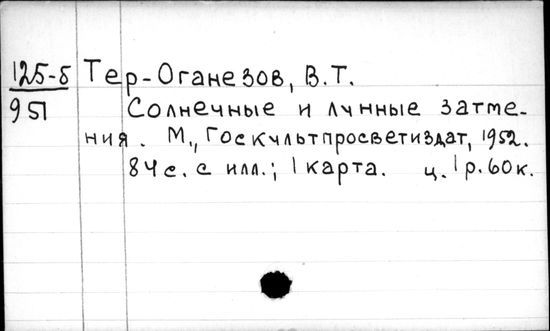 125-5 Тер-Оганезов, В.Т.
951 Солнечные и лунные затме-
ния. М., Госкультпросветиздат, 1952.
84 с. с илл.; 1 карта. ц. 1 р. 60 к.